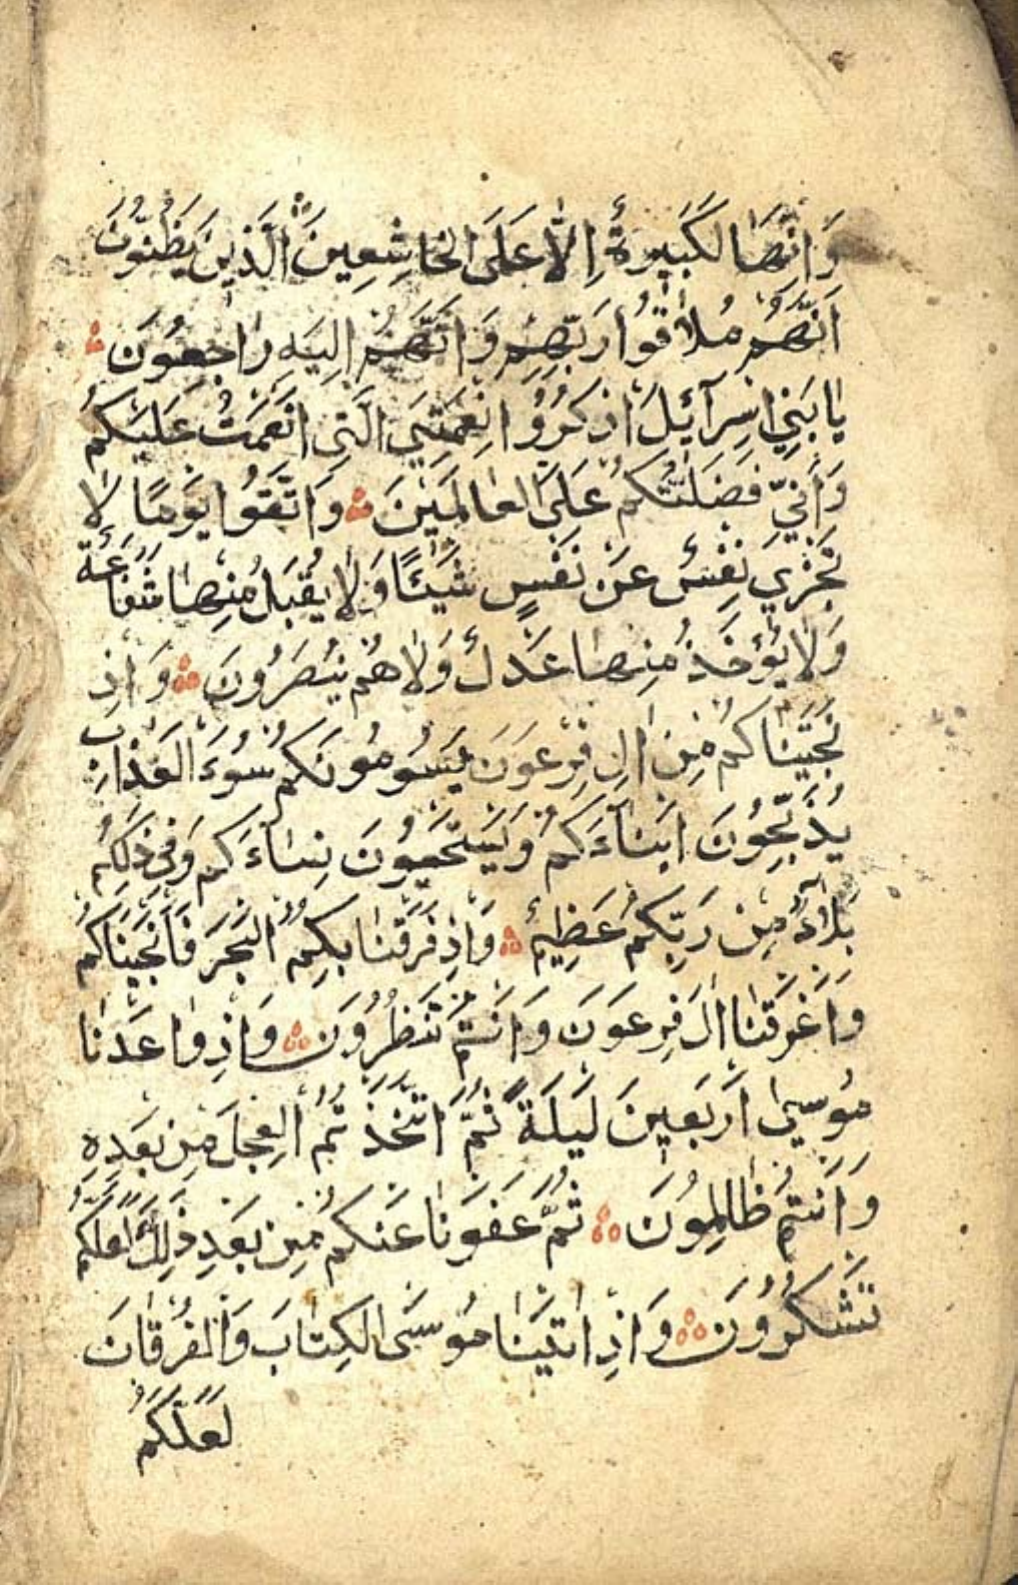 وَاِنَّهَا لَكَبِيرَةٌ اِلَّا عَلَى الخَاشِعِينَ الَّذِينَ يَظُنُّونَ
اَنَّهُمْ مُلَاقُوا رَبِّهِمْ وَاَنَّهُمْ اِلَيْهِ رَاجِعُونَ
يَا بَنِي اِسرَآئِلَ اذْكُرُوُا نِعْمَتِيَ الَّتِي اَنْعَمْتُ عَلَيْكُمْ
وَاَنِّي فَضَّلْتُكُمْ عَلَى العَالَمِينَ وَاتَّقُوا يَوْمًا لَا
تَجْزِي نَفْسٌ عَنْ نَفْسٍ شَيْئًا وَلَا يُقْبَلُ مِنْهَا شَفَاعَةٌ
وَلَا يُؤْخَذُ مِنْهَا عَدْلٌ وَلَا هُمْ يُنْصَرُونَ وَاِذْ
نَجَّيْنَاكُمْ مِنْ اٰلِ فِرْعَوْنَ يَسُومُونَكُمْ سُوءَ العَذَابِ
يُذَبِّحُونَ اَبْنَآءَكُمْ وَيَسْتَحْيُونَ نِسَآءَكُمْ وَفِي ذٰلِكُمْ
بَلَآءٌ مِنْ رَبِّكُمْ عَظِيمٌ وَاِذْ فَرَقْنَا بِكُمُ البَحْرَ فَاَنْجَيْنَاكُمْ
وَاَغْرَقْنَا اٰلَ فِرْعَوْنَ وَاَنْتُمْ تَنْظُرُونَ وَاِذْ وَاعَدْنَا
مُوسٰى اَرْبَعِينَ لَيْلَةً ثُمَّ اتَّخَذْتُمُ العِجْلَ مِنْ بَعْدِهِ
وَاَنْتُمْ ظَالِمُونَ ثُمَّ عَفَوْنَا عَنْكُمْ مِنْ بَعْدِ ذٰلِكَ لَعَلَّكُمْ
تَشْكُرُونَ وَاِذْ اٰتَيْنَا مُوسَى الكِتَابَ وَالفُرْقَانَ
لَعَلَّكُمْ